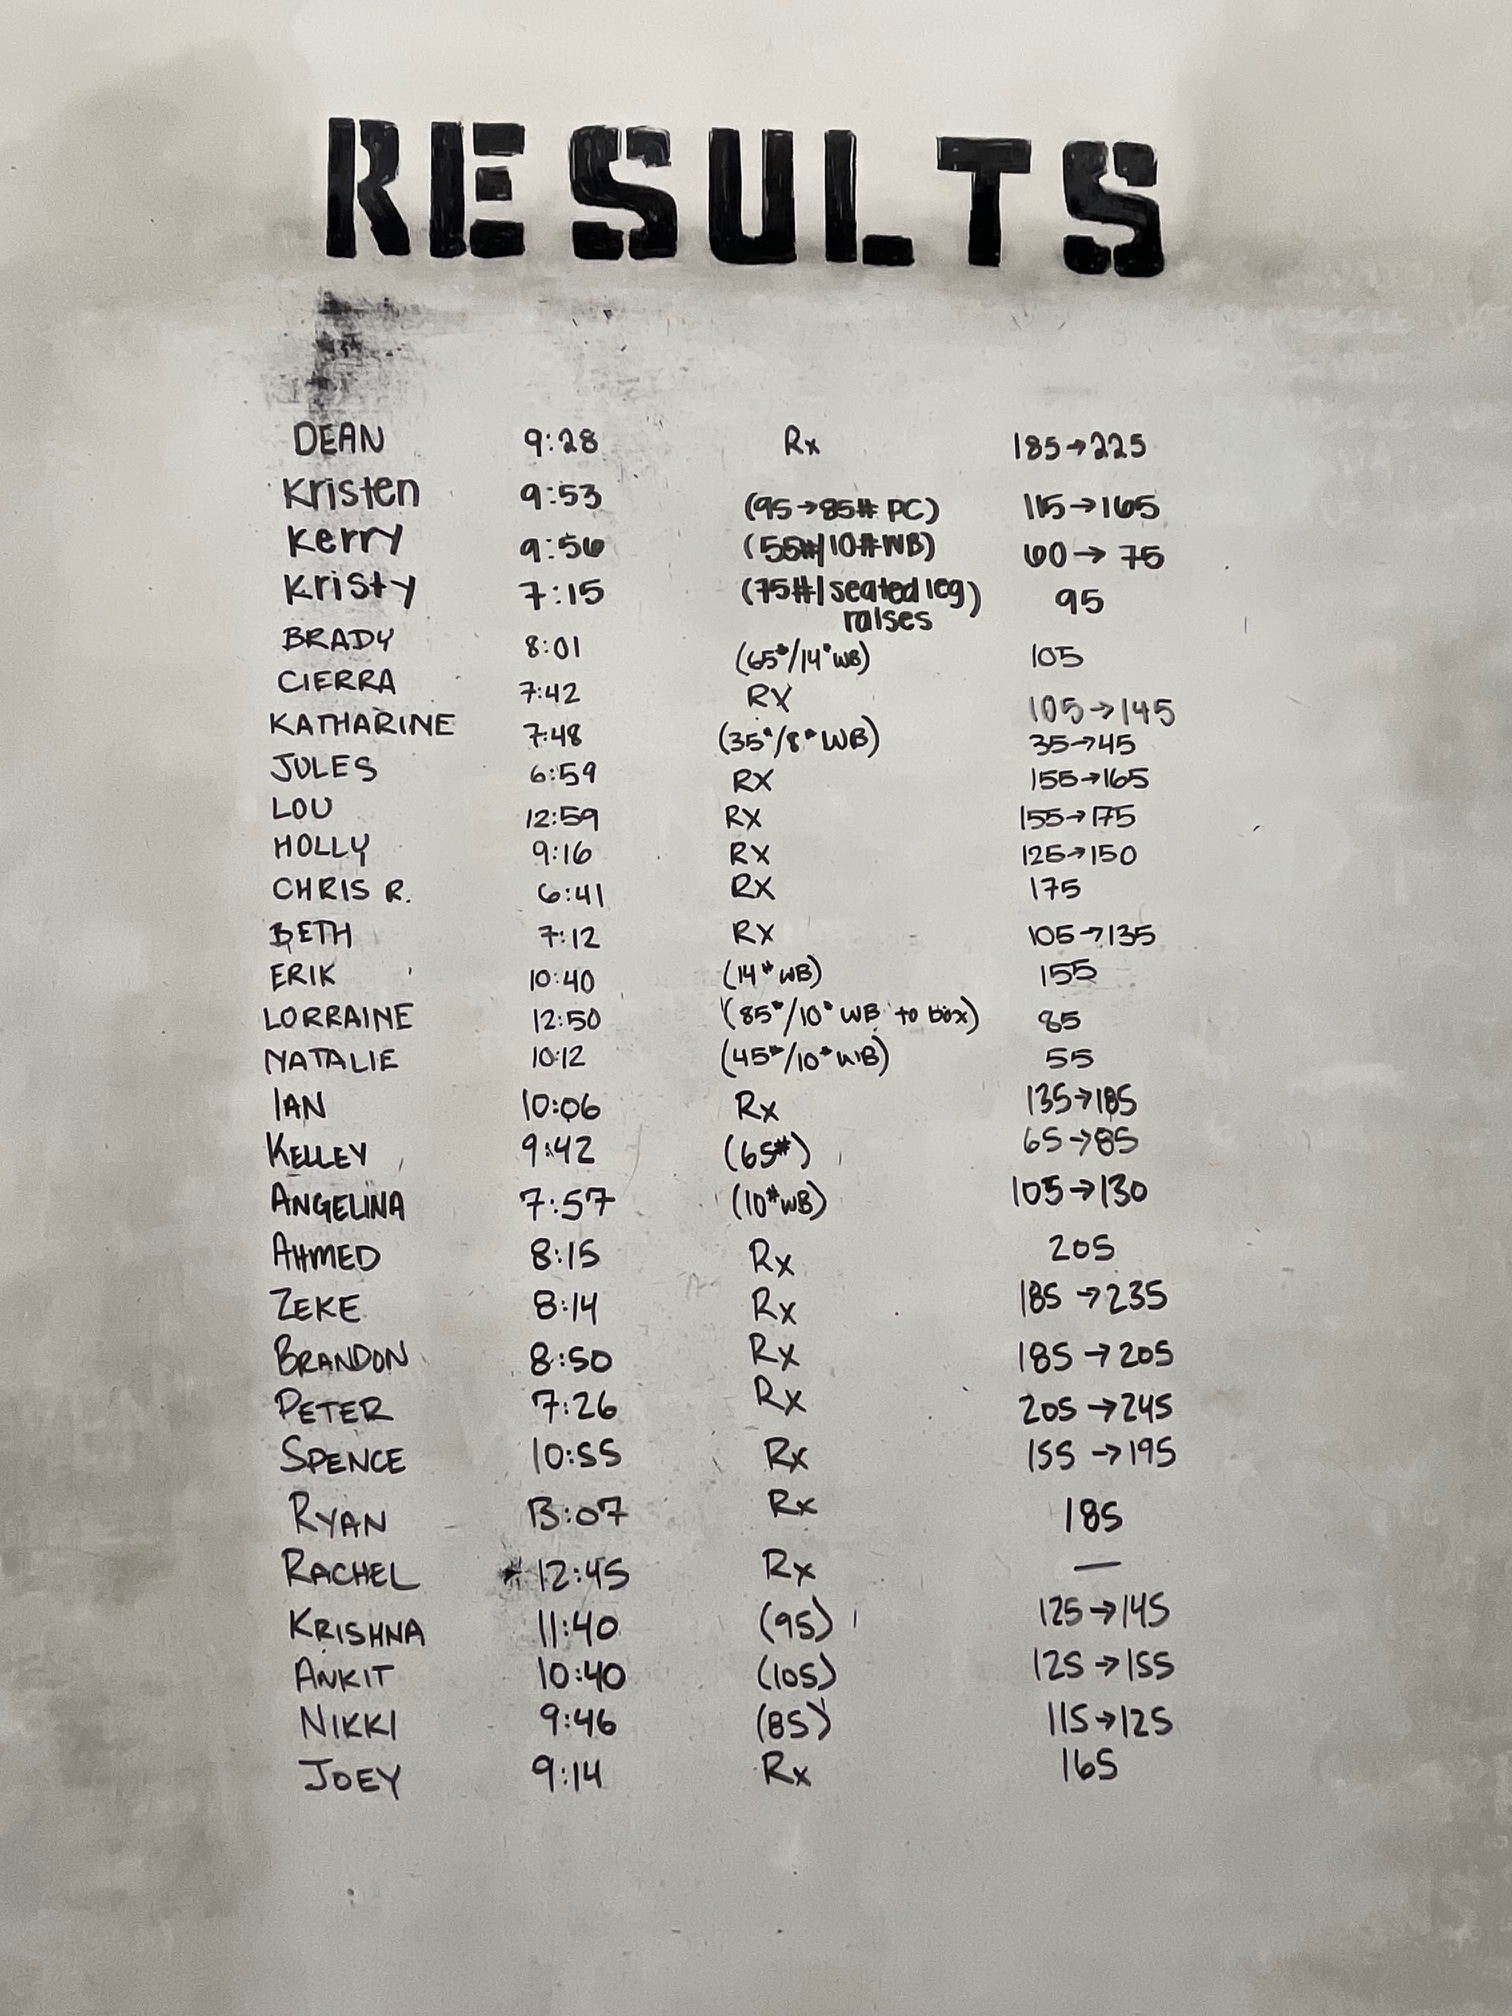 RESULTS
DEAN 9:28 Rx 185→225
Kristen 9:53 (95→85# PC) 115→165
Kerry 9:56 (55#/10# WB) 60→75
Kristy 7:15 (75#/seated leg raises) 95
BRADY 8:01 (65#/14# WB) 105
CIERRA 7:42 RX 105→145
KATHARINE 7:48 (35#/8# WB) 35→45
JULES 6:59 RX 155→165
LOU 12:59 RX 155→175
HOLLY 9:16 RX 125→150
CHRIS R. 6:41 RX 175
BETH 7:12 RX 105→135
ERIK 10:40 (14# WB) 155
LORRAINE 12:50 (85#/10# WB to box) 85
NATALIE 10:12 (45#/10# WB) 55
IAN 10:06 Rx 135→185
KELLEY 9:42 (65#) 65→85
ANGELINA 7:57 (10# WB) 105→130
AHMED 8:15 Rx 205
ZEKE 8:14 Rx 185→235
BRANDON 8:50 Rx 185→205
PETER 7:26 Rx 205→245
SPENCE 10:55 Rx 155→195
RYAN 13:07 Rx 185
RACHEL 12:45 Rx —
KRISHNA 11:40 (95) 125→145
ANKIT 10:40 (105) 125→155
NIKKI 9:46 (85) 115→125
JOEY 9:14 Rx 165